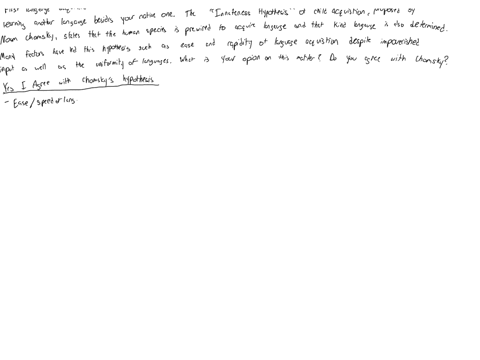 First language
learning another language besides your native one. The "Innateness Hypothesis" of child acquisition, proposed by
Noam Chomsky, states that the human species is prewired to acquire language and that kind language is also determined.
Many factors have led this hypothesis such as ease and rapidity of language acquisition despite impoverished
input as well as the uniformity of languages. What is your opion on this matter? Do you agree with Chomsky?
Yes I Agree with Chomsky's hypothesis
- Ease/speed of